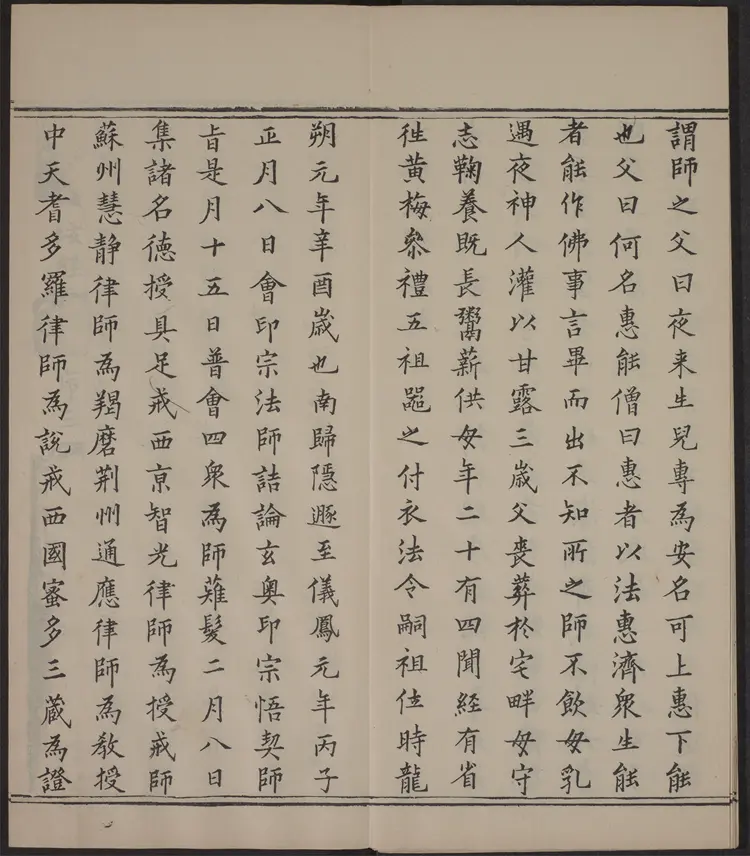 謂師之父曰夜来生兒專為安名可上惠下能
也父曰何名惠能僧曰惠者以法惠濟衆生能
者能作佛事言畢而出不知所之師不飲母乳
遇夜神人灌以甘露三歲父喪葬於宅畔母守
志鞠養既長鬻薪供母年二十有四聞經有省
徃黄梅叅禮五祖噐之付衣法令嗣祖位時龍
朔元年辛酉歲也南歸隠遯至儀鳳元年丙子
正月八日會印宗法師詰論玄奥印宗悟契師
㫖是月十五日普會四衆為師薙髮二月八日
集諸名德授具足戒西亰智光律師為授戒師
蘇州慧静律師為羯磨荆州通應律師為教授
中天耆多羅律師為說戒西國蜜多三藏為證